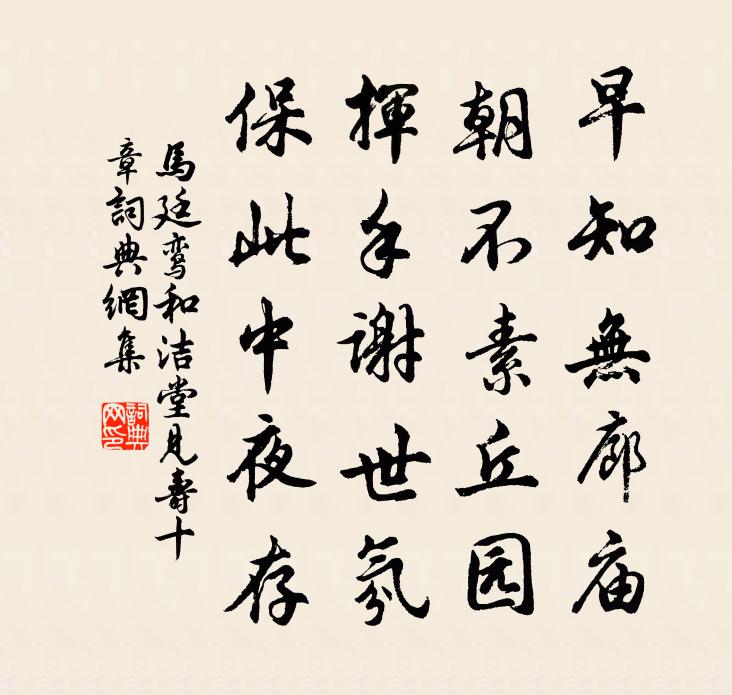 早知無廊庙
朝不素丘园
揮手謝世氛
保此中夜存
馬廷鸾和洁堂見壽十
章詞典網集
詞典
网印